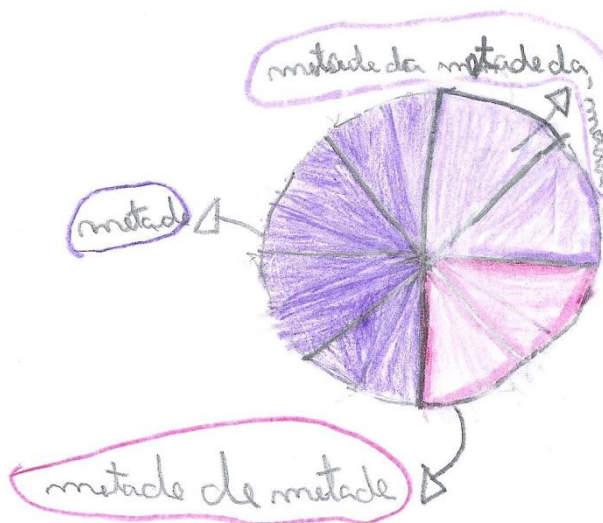 metade da metade da
metade
metade
metade de metade